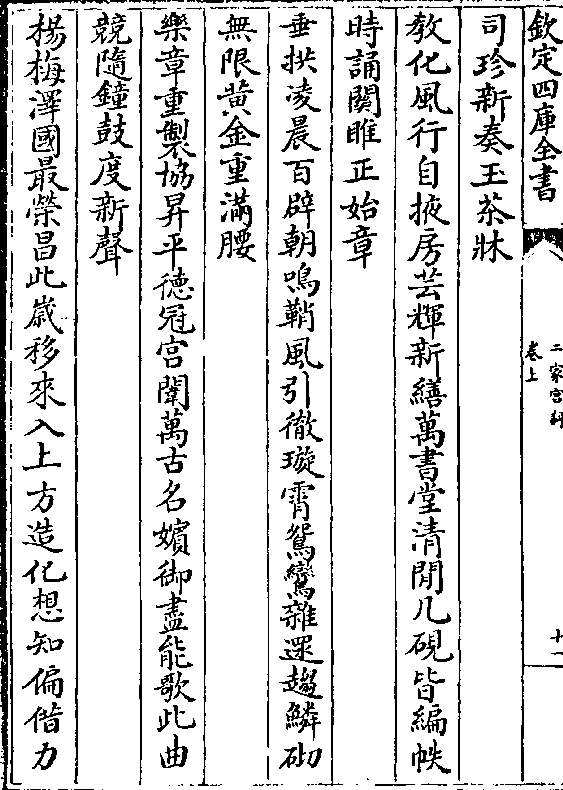 欽定四庫全書
二家宮詞
卷上
十一
司珍新奏玉茶牀
教化風行自掖房芸輝新繕萬書堂清閒几硯皆編帙
時誦關雎正始章
垂拱凌晨百辟朝鳴鞘風引徹璇霄鴛鸞雜遝趨鱗砌
無限黄金重滿腰
樂章重製協昇平德冠宫闈萬古名嬪御盡能歌此曲
競隨鐘鼓度新聲
楊梅澤國最榮昌此歲移來入上方造化想知偏借力